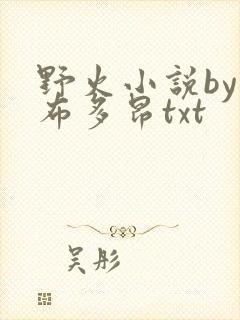 野火小説by
布多昂txt
吴彤